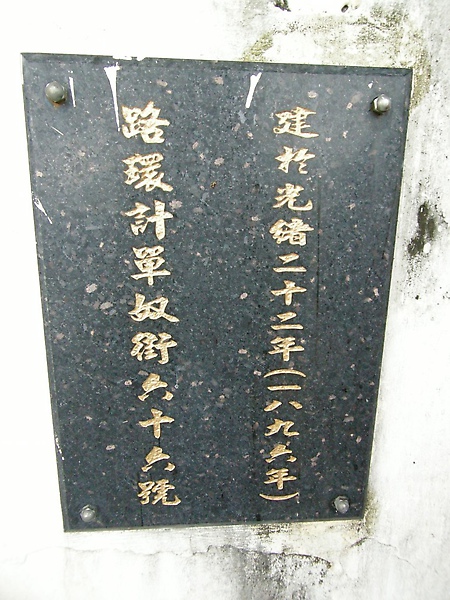 建於光緒二十二年(一八九六年)
路環計單奴街六十六號